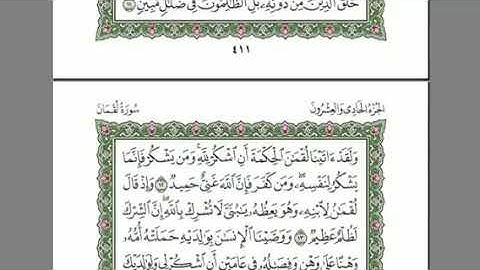 خَلَقَ ٱلَّذِينَ مِن دُونِهِۦۚ بَلِ ٱلظَّٰلِمُونَ فِي ضَلَٰلٖ مُّبِينٖ ١١
٤١١
الجُزْءُ الحَادِي وَالعِشْرُونَ
سُورَةُ لُقْمَانَ
وَلَقَدۡ ءَاتَيۡنَا لُقۡمَٰنَ ٱلۡحِكۡمَةَ أَنِ ٱشۡكُرۡ لِلَّهِۚ وَمَن يَشۡكُرۡ فَإِنَّمَا
يَشۡكُرُ لِنَفۡسِهِۦۖ وَمَن كَفَرَ فَإِنَّ ٱللَّهَ غَنِيٌّ حَمِيدٞ ١٢ وَإِذۡ قَالَ
لُقۡمَٰنُ لِٱبۡنِهِۦ وَهُوَ يَعِظُهُۥ يَٰبُنَيَّ لَا تُشۡرِكۡ بِٱللَّهِۖ إِنَّ ٱلشِّرۡكَ
لَظُلۡمٌ عَظِيمٞ ١٣ وَوَصَّيۡنَا ٱلۡإِنسَٰنَ بِوَٰلِدَيۡهِ حَمَلَتۡهُ أُمُّهُۥ
وَهۡنًا عَلَىٰ وَهۡنٖ وَفِصَٰلُهُۥ فِي عَامَيۡنِ أَنِ ٱشۡكُرۡ لِي وَلِوَٰلِدَيۡكَ